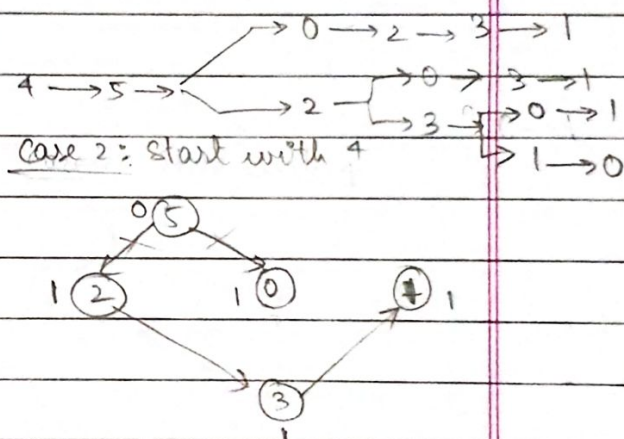 0 → 2 → 3 → 1
4 → 5 →
0 → 3 → 1
2
3 → 0 → 1
1 → 0
Case 2: Start with 4
0 5
1 2 1 0 1 1
3
1